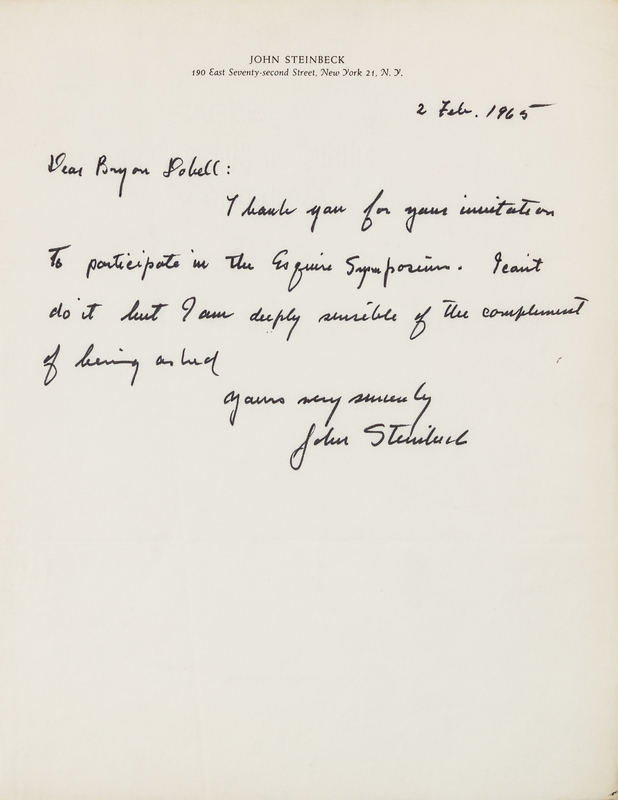 JOHN STEINBECK
190 East Seventy-second Street, New York 21, N. Y.
2 Feb. 1965
Dear Bryon Dobell:
Thank you for your invitation
To participate in the Esquire Symposium. I cant
do it but I am deeply sensible of the complement
of being asked
yours very sincerely
John Steinbeck